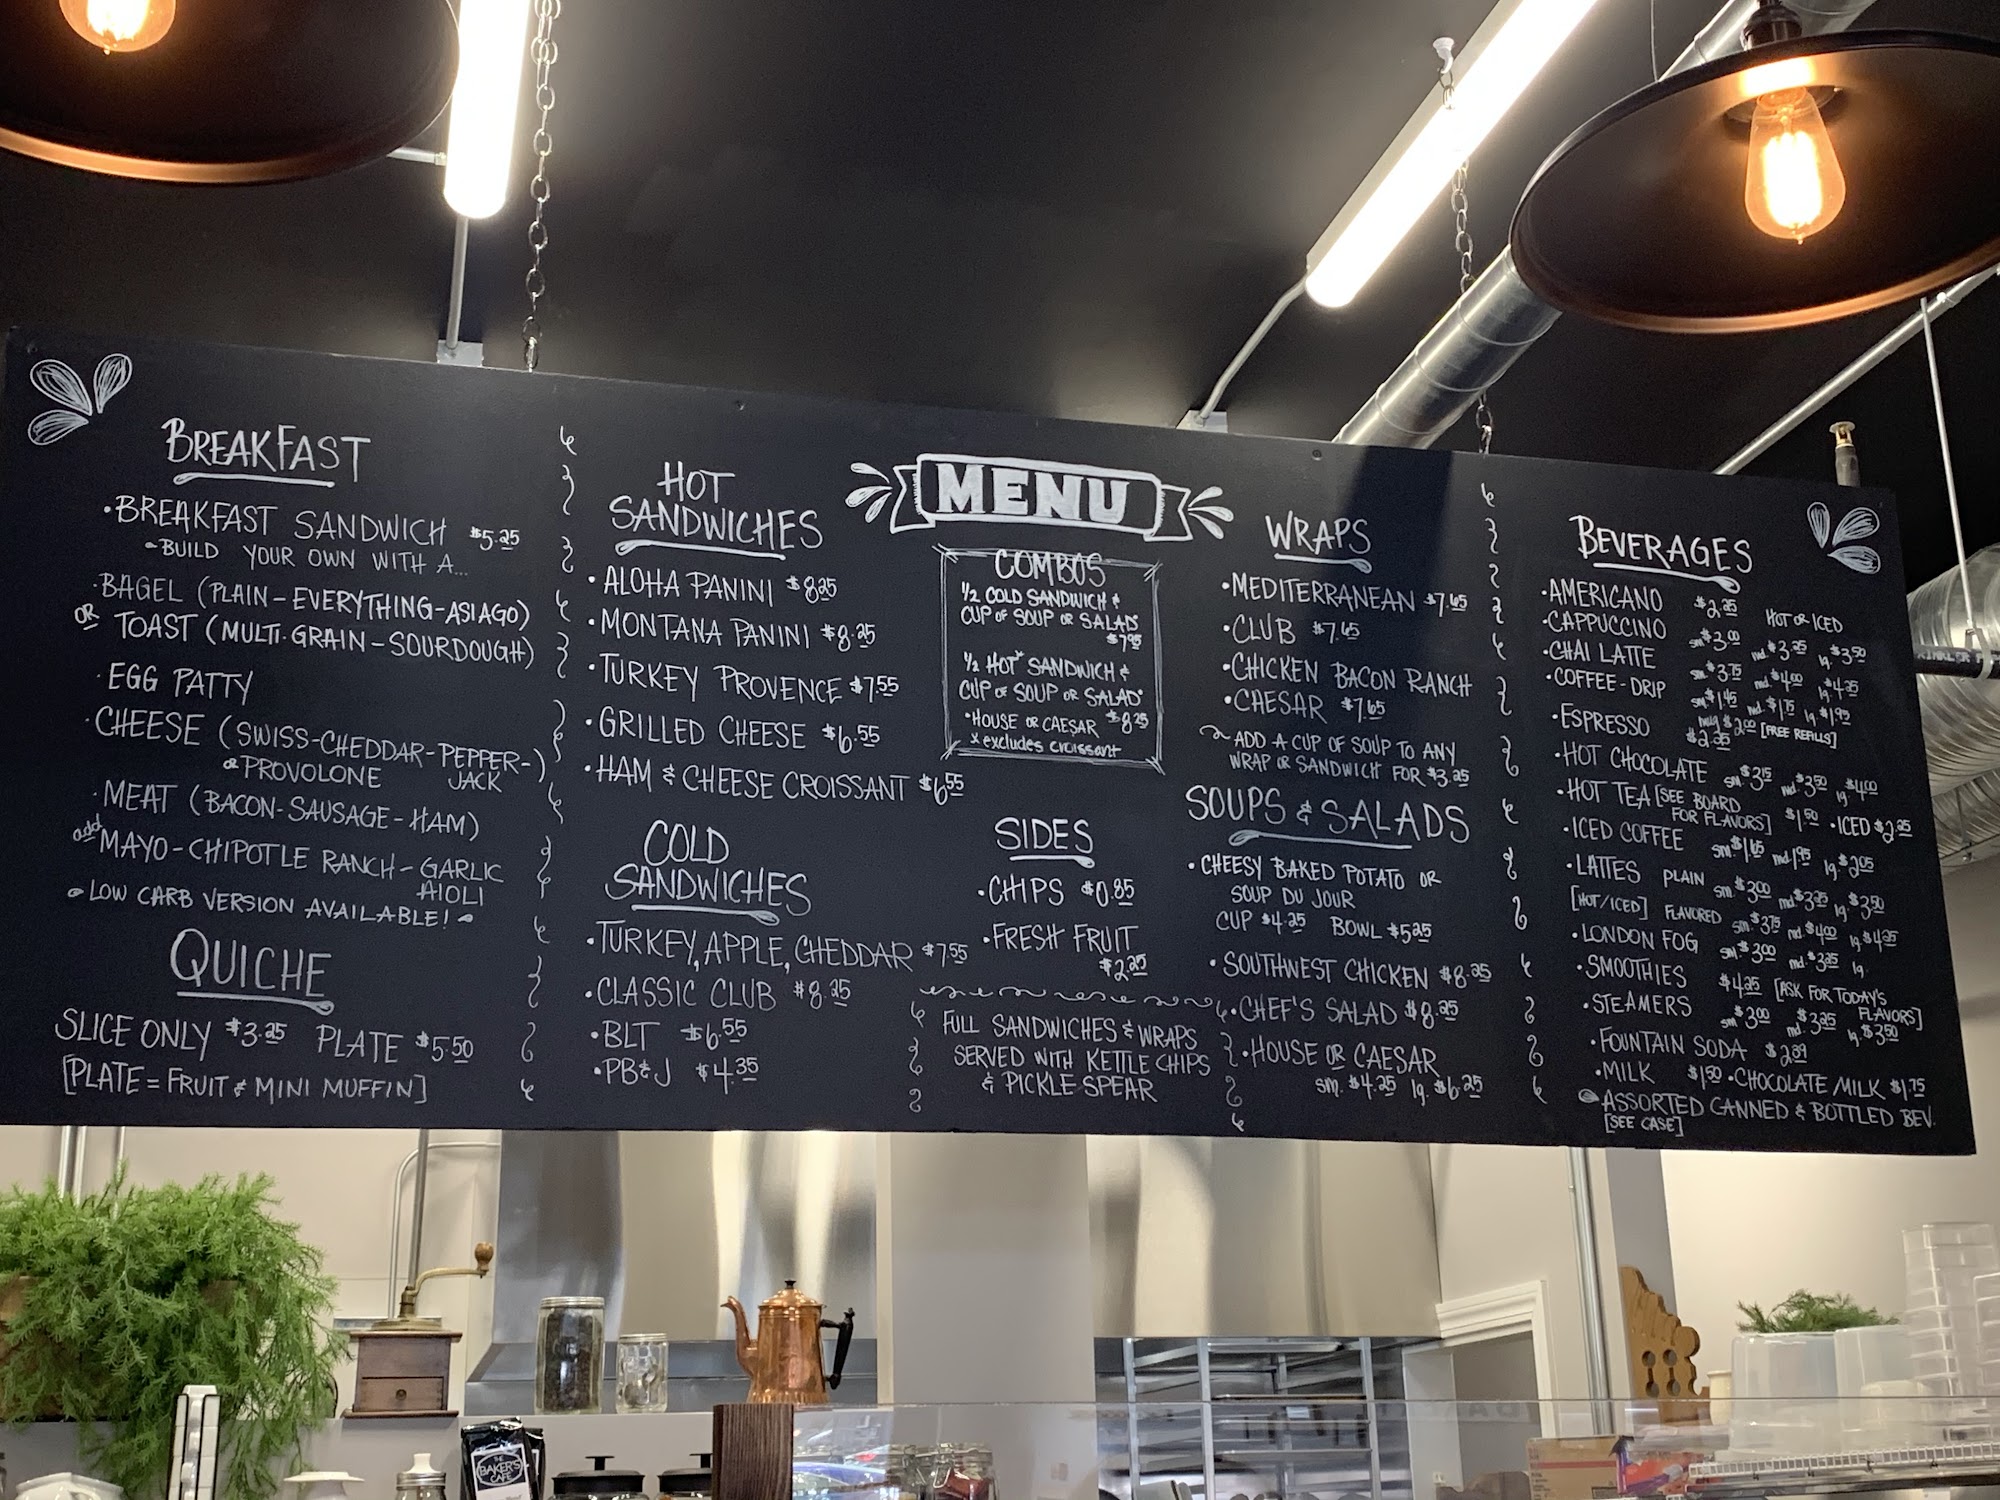 BREAKFAST
•BREAKFAST SANDWICH $5.25
-BUILD YOUR OWN WITH A...
·BAGEL (PLAIN-EVERYTHING-ASIAGO)
OR TOAST (MULTI-GRAIN-SOURDOUGH)
·EGG PATTY
·CHEESE (SWISS-CHEDDAR-PEPPER-)
or PROVOLONE JACK
·MEAT (BACON-SAUSAGE-HAM)
add MAYO-CHIPOTLE RANCH-GARLIC
AIOLI
LOW CARB VERSION AVAILABLE!
QUICHE
SLICE ONLY $3.25 PLATE $5.50
[PLATE = FRUIT & MINI MUFFIN]
HOT
SANDWICHES
•ALOHA PANINI $8.25
•MONTANA PANINI $8.25
•TURKEY PROVENCE $7.55
•GRILLED CHEESE $6.55
•HAM & CHEESE CROISSANT $6.55
COLD
SANDWICHES
•TURKEY, APPLE, CHEDDAR $7.55
•CLASSIC CLUB $8.25
•BLT $6.55
•PB&J $4.35
MENU
COMBOS
½ COLD SANDWICH &
CUP OF SOUP OR SALAD*
$7.95
½ HOT* SANDWICH &
CUP OF SOUP OR SALAD*
$8.25
•HOUSE OR CAESAR
* excludes croissant
SIDES
•CHIPS $0.85
•FRESH FRUIT
$2.25
FULL SANDWICHES & WRAPS
SERVED WITH KETTLE CHIPS
& PICKLE SPEAR
WRAPS
•MEDITERRANEAN $7.65
•CLUB $7.65
•CHICKEN BACON RANCH
•CAESAR $7.65
~ADD A CUP OF SOUP TO ANY
WRAP OR SANDWICH FOR $3.25
SOUPS & SALADS
•CHEESY BAKED POTATO OR
SOUP DU JOUR
CUP $4.25 BOWL $5.25
•SOUTHWEST CHICKEN $8.25
•CHEF'S SALAD $8.25
•HOUSE OR CAESAR
sm. $4.25 lg. $6.25
BEVERAGES
•AMERICANO $2.25 HOT OR ICED
•CAPPUCCINO sm $3.00 md $3.25 lg. $3.50
•CHAI LATTE sm. $3.75 md. $4.00 lg. $4.25
•COFFEE-DRIP sm $1.45 md. $1.75 lg $1.95
mug $2.00 [FREE REFILLS]
•ESPRESSO $2.25
•HOT CHOCOLATE sm $3.15 md $3.50 lg $4.00
•HOT TEA [SEE BOARD
FOR FLAVORS] $1.50 •ICED $2.25
•ICED COFFEE sm. $1.65 md 1.95 lg. $2.05
•LATTES PLAIN sm. $3.00 md $3.25 lg. $3.50
[HOT/ICED] FLAVORED sm. $3.75 md. $4.00 lg $4.25
•LONDON FOG sm $3.00 md. $3.25 lg.
•SMOOTHIES $4.25 [ASK FOR TODAY'S
FLAVORS]
•STEAMERS sm $3.00 md. $3.25 lg. $3.50
•FOUNTAIN SODA $2.89
•MILK $1.50 •CHOCOLATE MILK $1.75
ASSORTED CANNED & BOTTLED BEV.
[SEE CASE]
THE
BAKER'S
CAFE